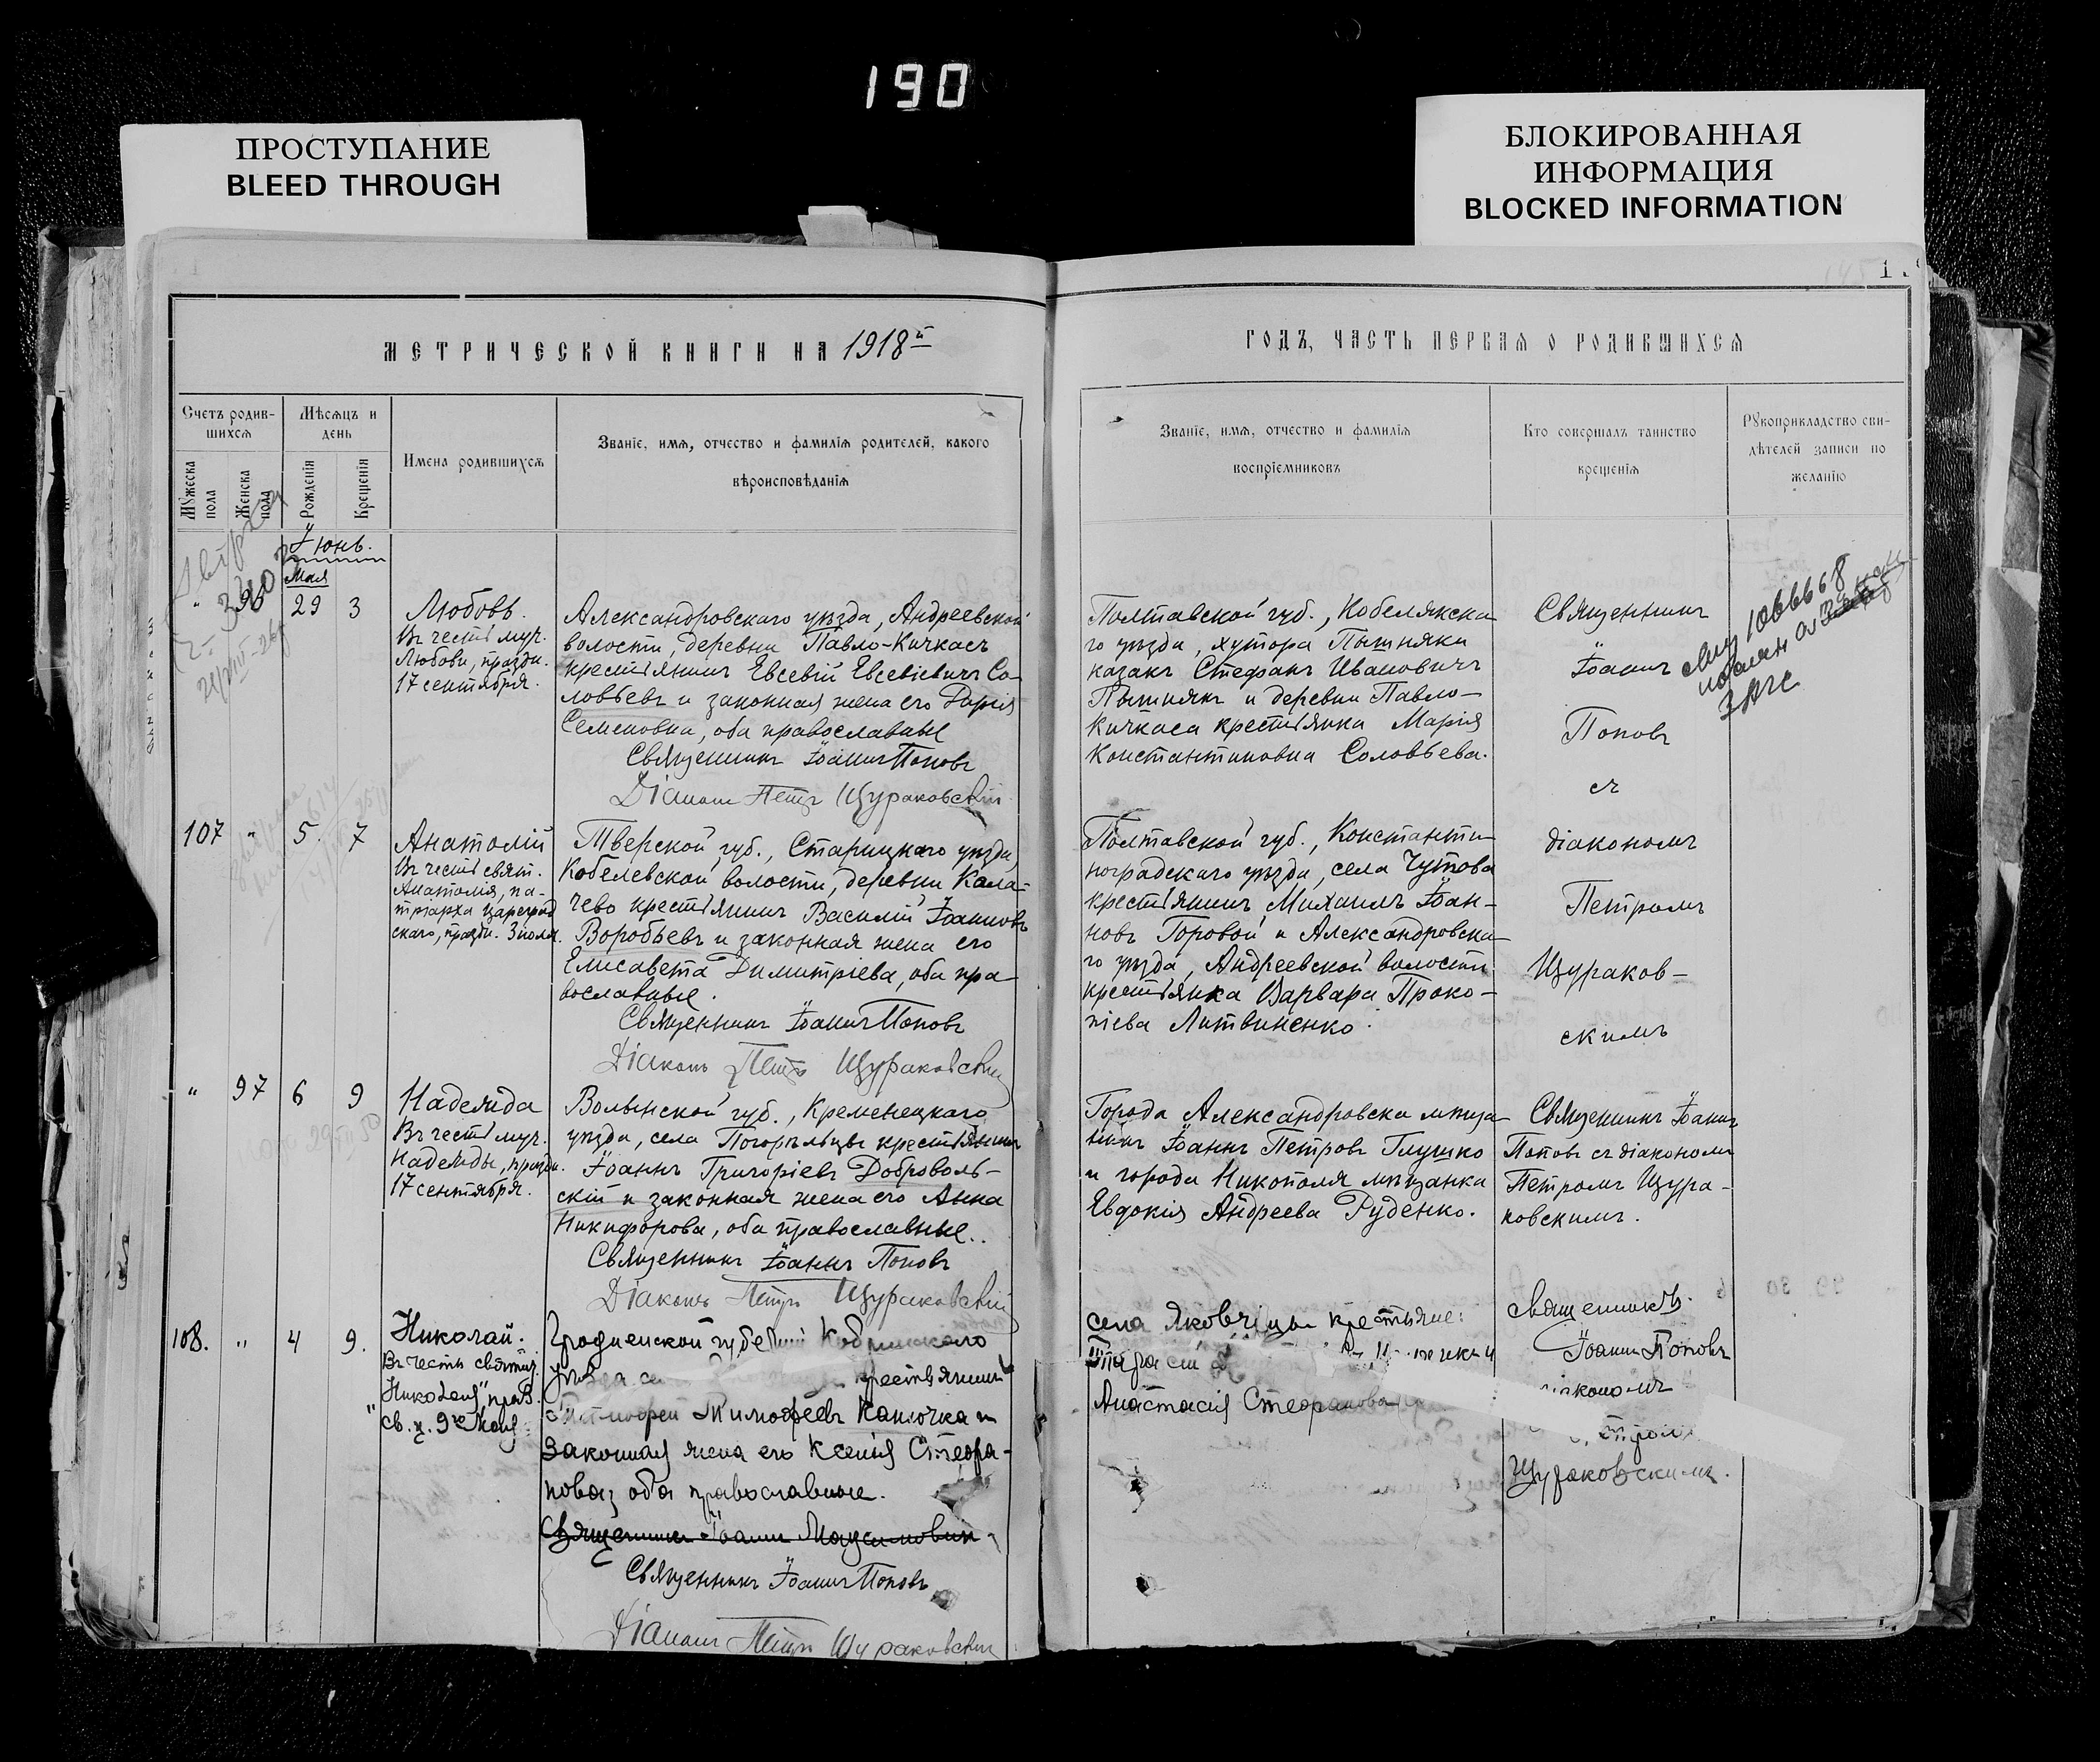 190
ПРОСТУПАНИЕ
BLEED THROUGH
БЛОКИРОВАННАЯ
ИНФОРМАЦИЯ
BLOCKED INFORMATION
МЕТРИЧЕСКОЙ КНИГИ НА 1918й
Счетъ родив-
шихся
Мѣсяцъ и
день
Имена родившихся
Званіе, имя, отчество и фамилія родителей, какого
вѣроисповѣданія
Мужеска
пола
Женска
пола
Рожденія
Крещенія
Іюнь.
Мая
" 96 29 3
Любовь.
Въ честь муч.
Любови, праздн.
17 сентября.
Александровскаго уѣзда, Андреевской
волости, деревни Павло-Кичкасъ
крестьянинъ Евсевій Евсевіевичъ Со-
ловьевъ и законная жена его Дарія
Семеновна, оба православные
Священникъ Іоаннъ Поповъ
Діаконъ Петръ Щураковскій
107 " 5. 7
Анатолій
Въ честь свят.
Анатолія, па-
тріарха Цареград
скаго, праздн. 3 іюля.
Тверской губ., Старицкаго уѣзда,
Кобелевской волости, деревни Кала-
чево крестьянинъ Василій Іоанновъ
Воробьевъ и законная жена его
Елисавета Димитріева, оба пра-
вославные.
Священникъ Іоаннъ Поповъ
Діаконъ Петръ Щураковскій
" 97 6 9
Надежда
Въ честь муч.
Надежды, праздн.
17 сентября.
Волынской губ., Кременецкаго
уѣзда, села Погорѣльцы крестьянинъ
Іоаннъ Григоріевъ Доброволь-
скій и законная жена его Анна
Никифорова, оба православные..
Священникъ Іоаннъ Поповъ
Діаконъ Петръ Щураковскій
108. " 4 9.
Николай.
Въ честь святит.
"Николая", праз.
св. ц. 9го Мая
Гродненской губерніи Кобринскаго
уѣзда крестьянинъ
Тимофей Тимофеевъ Каплочка и
законная жена его Ксенія Стефа-
нова; оба православные.
Священникъ Іоаннъ
Священникъ Іоаннъ Поповъ
Діаконъ Петръ Щураковскій
ГОДЪ, ЧАСТЬ ПЕРВАЯ О РОДИВШИХСЯ
Званіе, имя, отчество и фамилія
воспріемниковъ
Кто совершалъ таинство
крещенія
Рукоприкладство сви-
дѣтелей записи по
желанію
Полтавской губ., Кобелякска
го уѣзда, хутора Пышняки
казакъ Стефанъ Ивановичъ
Пышнякъ и деревни Павло-
Кичкаса крестьянка Марія
Константиновна Соловьева.
Священникъ
Іоаннъ
Поповъ
съ
діакономъ
Петромъ
Щураков-
скимъ
1066668
ЗАГС
Полтавской губ., Константи-
ноградскаго уѣзда, села Чутова
крестьянинъ Михаилъ Іоан-
новъ Горовой и Александровска-
го уѣзда, Андреевской волости
крестьянка Варвара Проко-
піева Литвиненко.
Города Александровска мѣща-
нинъ Іоаннъ Петровъ Глушко
и города Никополя мѣщанка
Евдокія Андреева Руденко.
Священникъ Іоаннъ
Поповъ съ діакономъ
Петромъ Щура-
ковскимъ.
села Яковчицы крестьяне:
Анастасія Стефанова
Священникъ.
Іоаннъ Поповъ
Щураковскимъ.